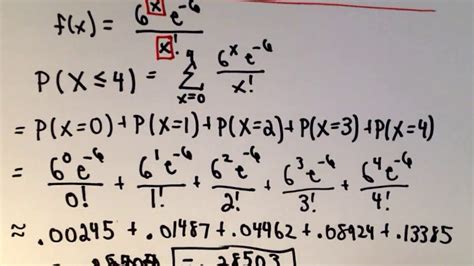 f(x) = 6^x e^-6 / x!
P(X ≤ 4) = Σ_{x=0}^{4} 6^x e^-6 / x!
= P(X=0) + P(X=1) + P(X=2) + P(X=3) + P(X=4)
= 6^0 e^-6 / 0! + 6^1 e^-6 / 1! + 6^2 e^-6 / 2! + 6^3 e^-6 / 3! + 6^4 e^-6 / 4!
≈ .00245 + .01487 + .04462 + .08924 + .13385
.28503